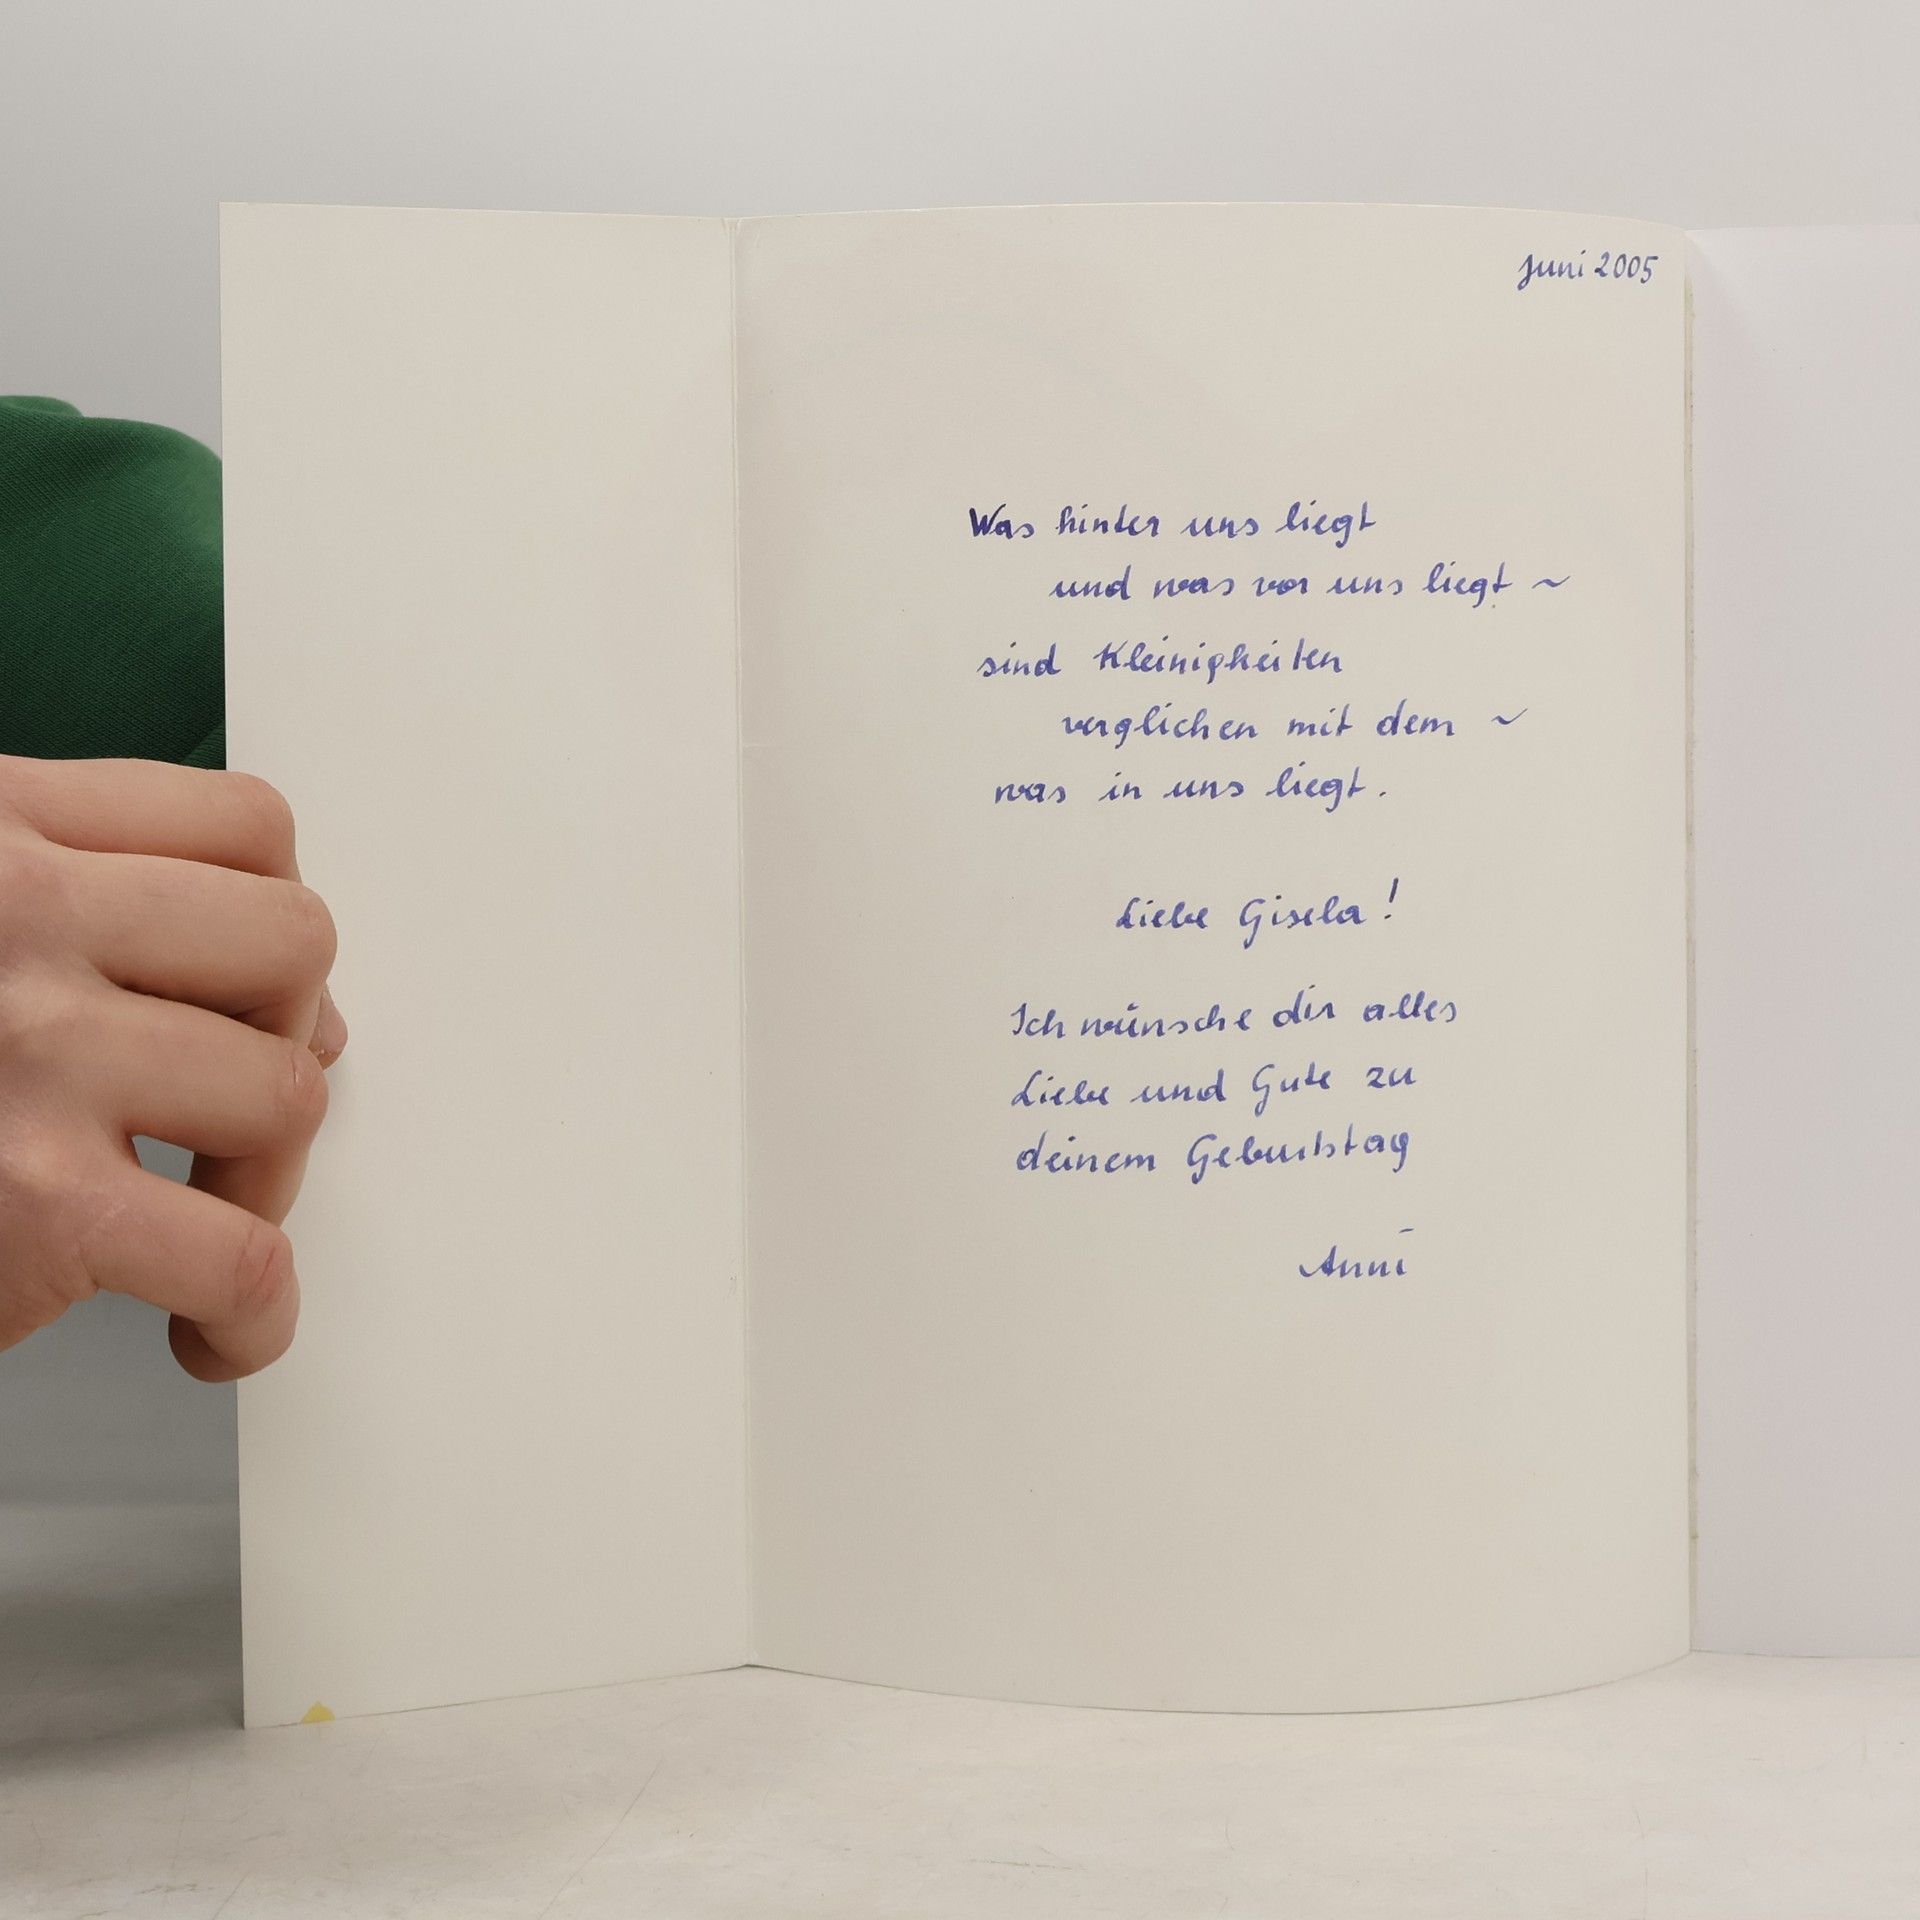 Juni 2005
Was hinter uns liegt
und was vor uns liegt ~
sind Kleinigkeiten
verglichen mit dem ~
was in uns liegt.
Liebe Gisela!
Ich wünsche dir alles
Liebe und Gute zu
deinem Geburtstag
Anni